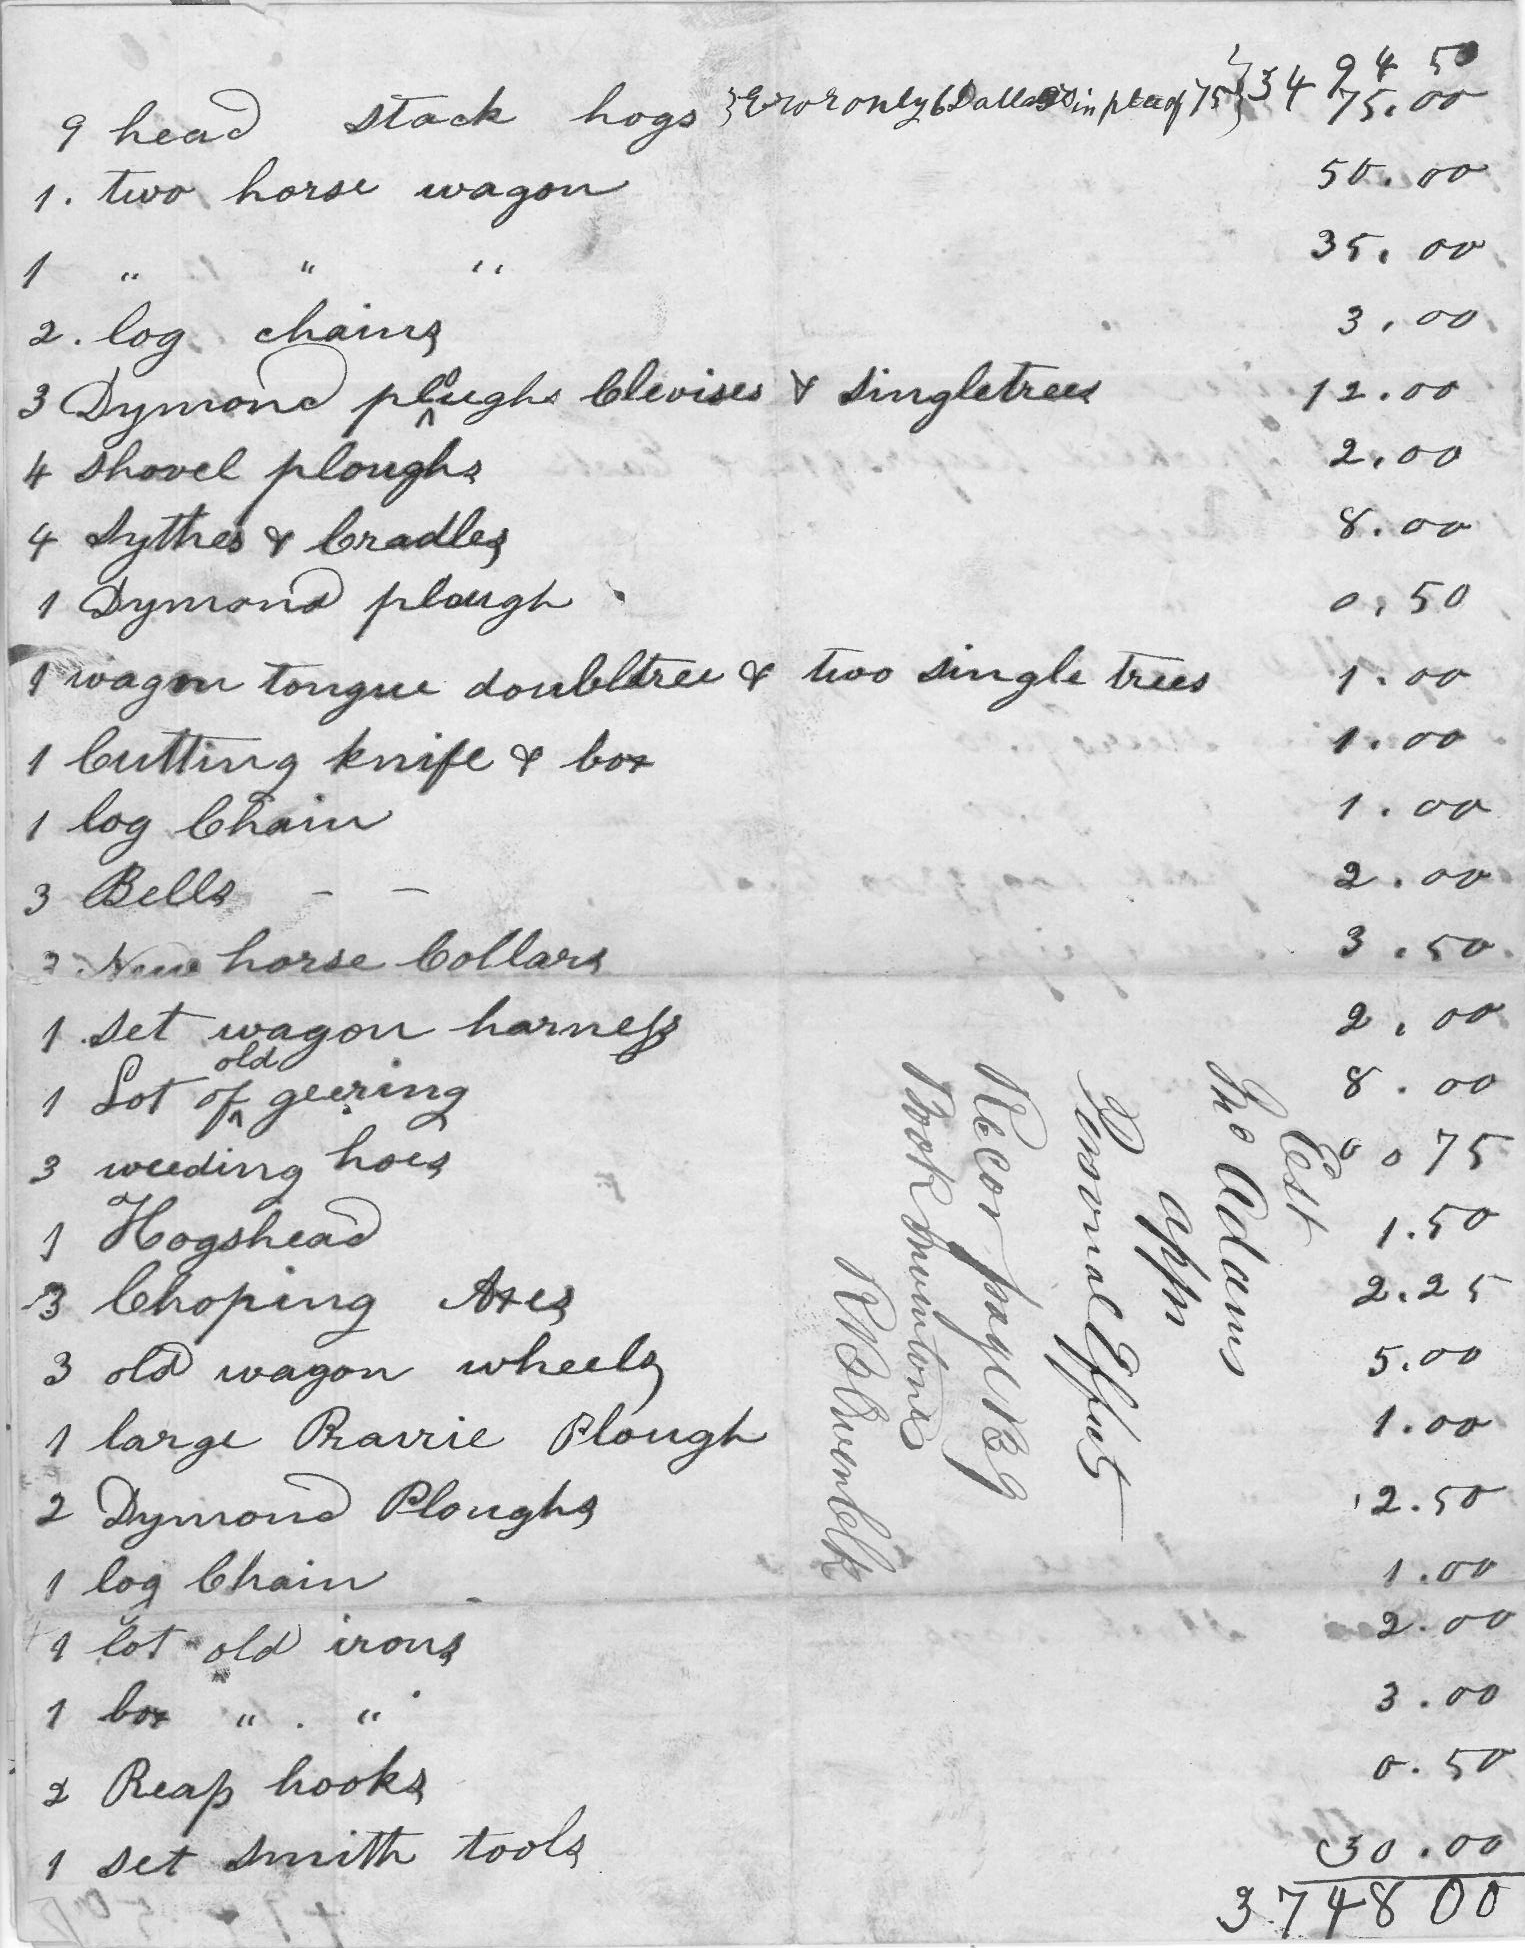 3494 50
9 head stock hogs {Error only 6 Dollars in place of 75} 75.00
1. two horse wagon 50.00
1 " " " 35.00
2. log chains 3.00
3 Dymond ploughs Clevises & Singletrees 12.00
4 Shovel ploughs 2.00
4 Sythes & Cradles 8.00
1 Dymond plough 0.50
1 wagon tongue doubltree & two single trees 1.00
1 Cutting knife & box 1.00
1 log Chain 1.00
3 Bells - - 2.00
2 New horse Collars 3.50
1 set wagon harness 2.00
1 Lot of old geering 8.00
3 weeding hoes 0.75
1 Hogshead 1.50
3 Choping Axes 2.25
3 old wagon wheels 5.00
1 large Prairie Plough 1.00
2 Dymond Ploughs 2.50
1 log Chain 1.00
1 lot old irons 2.00
1 box " . " 3.00
2 Reap hooks 0.50
1 set smith tools 30.00
3748 00
Est
Adams
appr
Personal Effects
Recor page 189
Book